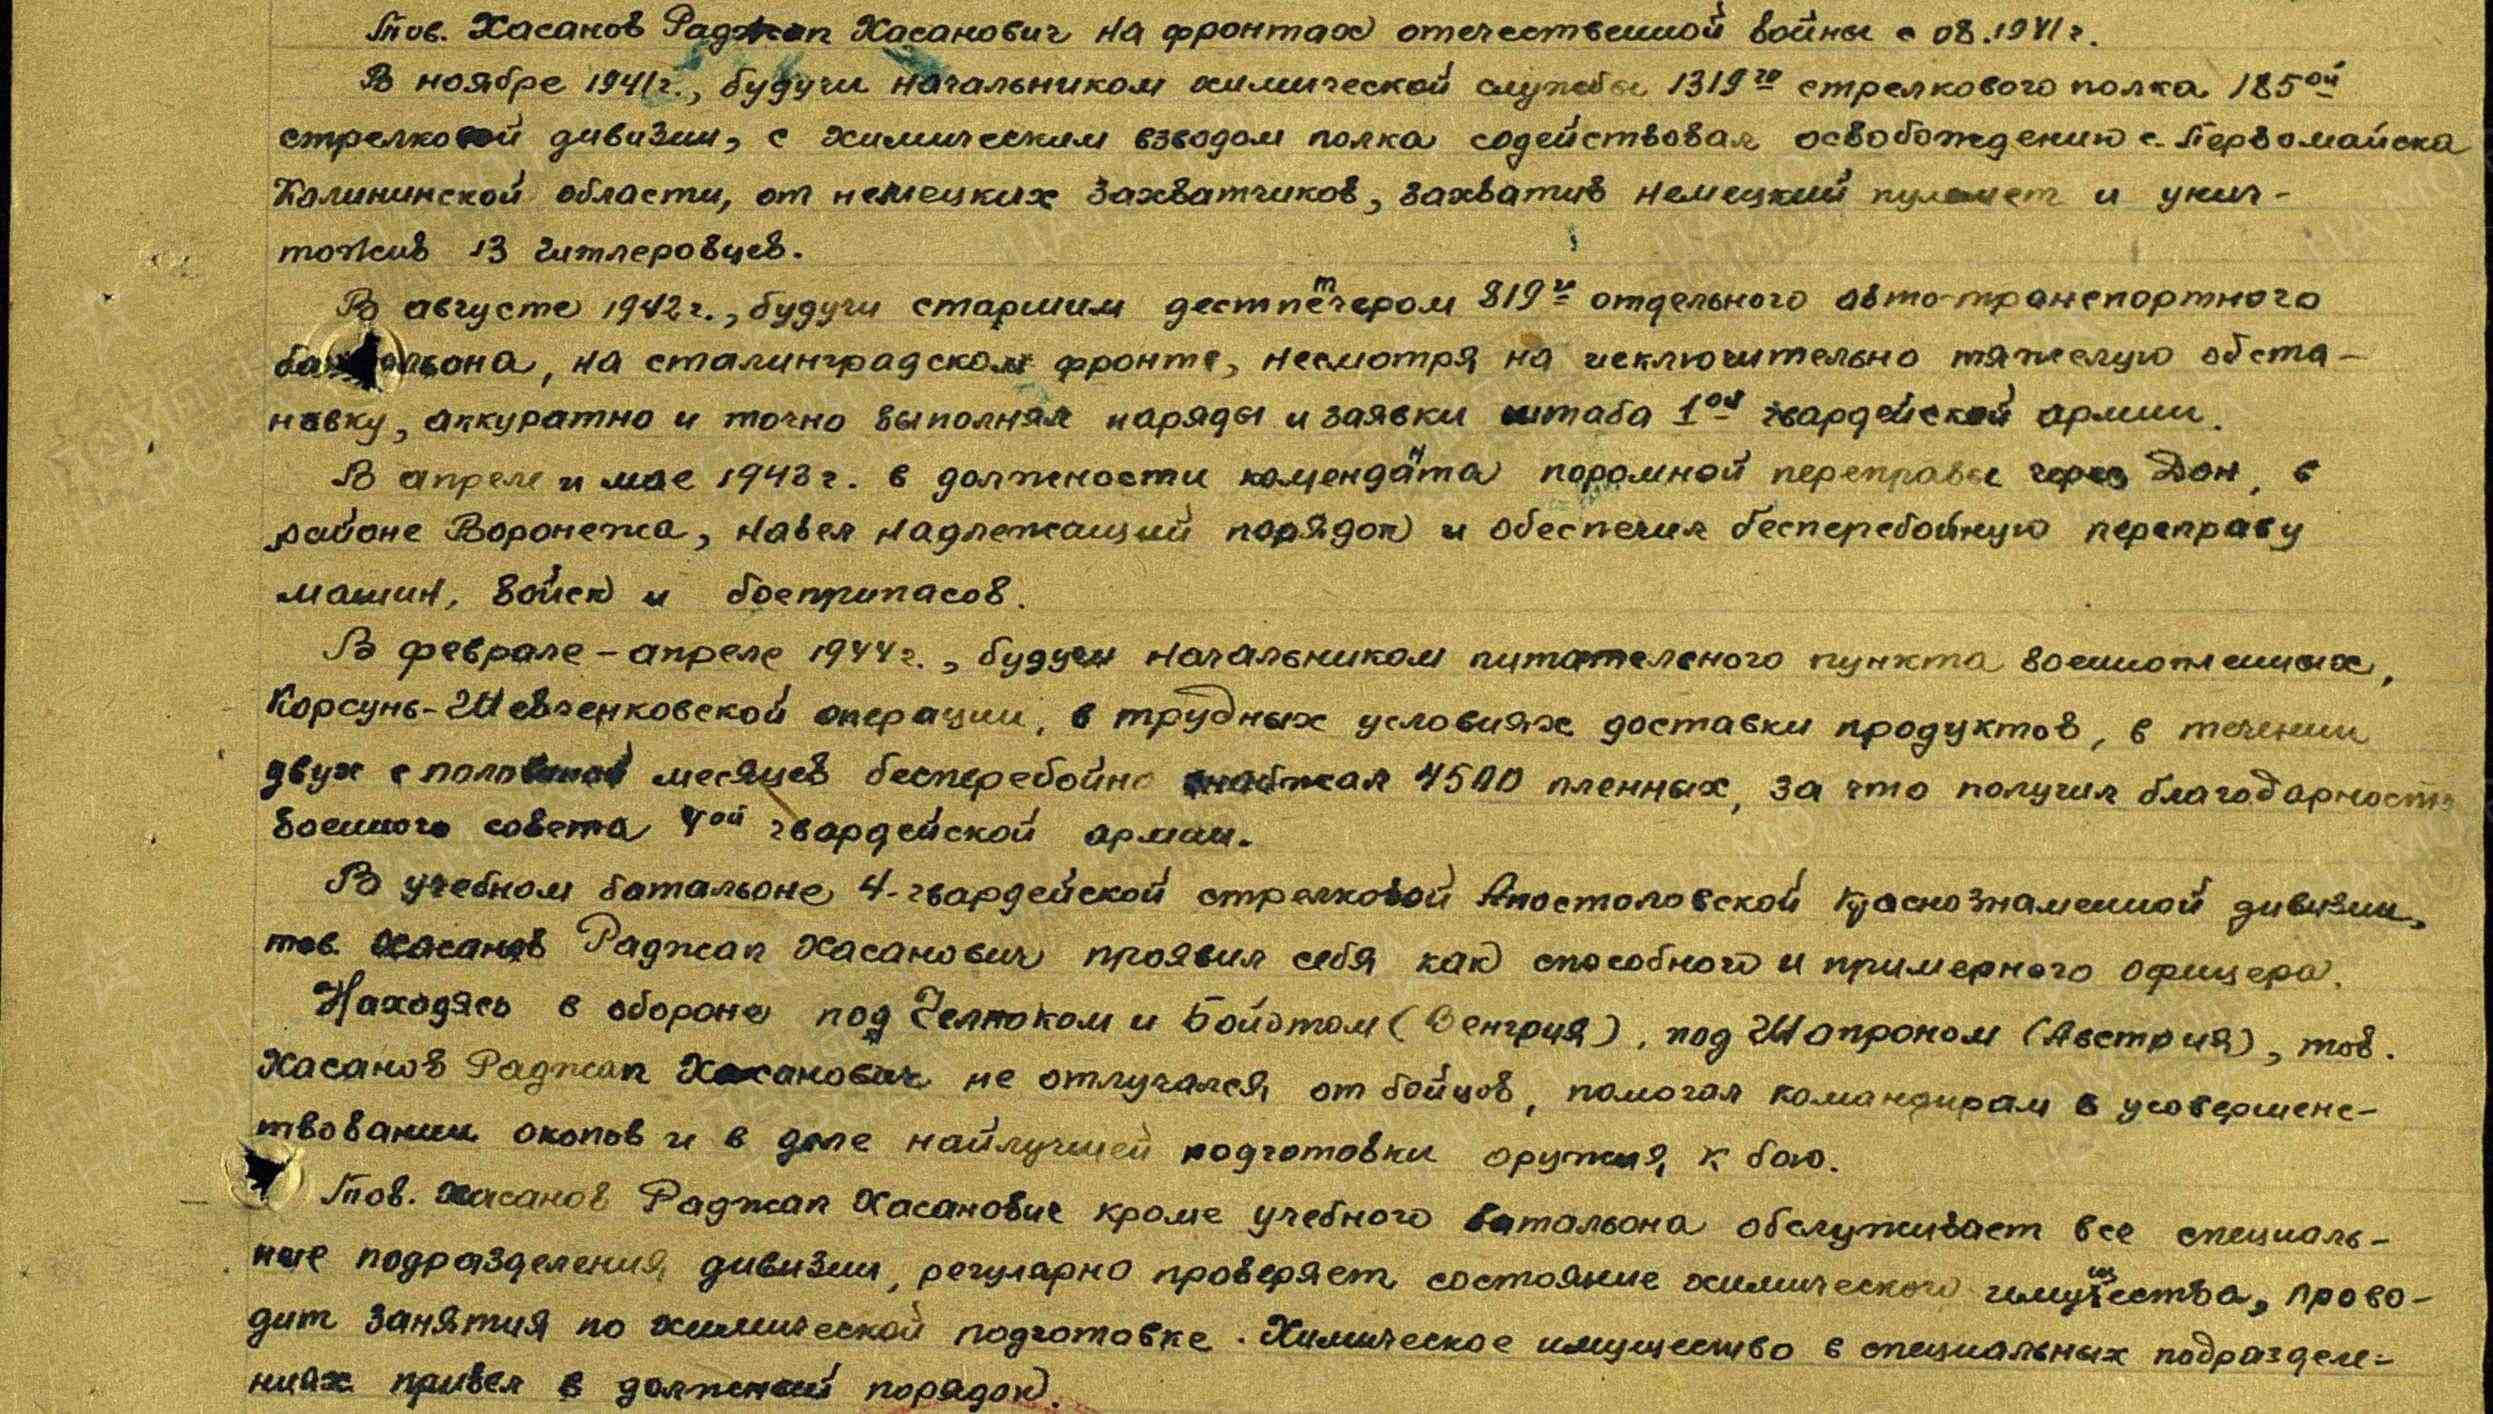 Тов. Хасанов Раджап Хасанович на фронтах отечественной войны с 08.1941г.
В ноябре 1941г., будучи начальником химической службы 1319го стрелкового полка 185ой
стрелковой дивизии, с химическим взводом полка содействовал освобождению с. Первомайска
Калининской области, от немецких захватчиков, захватив немецкий пулемет и унич-
тожив 13 гитлеровцев.
В августе 1942г., будучи старшим
отдельного авто-транспортного
батальона, на сталинградском фронте, несмотря на исключительно тяжелую обста-
новку, аккуратно и точно выполнял наряды и заявки штаба 1ой гвардейской армии.
В апреле и мае 1943г. в должности коменданта поромной переправы через Дон, в
районе Воронежа, навел надлежащий порядок и обеспечил бесперебойную переправу
машин, войск и боеприпасов.
В феврале-апреле 1944г., будучи начальником питательного пункта военнопленных,
Корсунь-Шевченковской операции, в трудных условиях доставки продуктов, в течении
двух с половиной месяцев бесперебойно снабжал 4500 пленных, за что получил благодарность
военного совета 4ой гвардейской армии.
В учебном батальоне 4-гвардейской стрелковой Апостоловской Краснознаменной дивизии,
тов. Хасанов Раджап Хасанович проявил себя как способного и примерного офицера.
Находясь в обороне под и Бойотом (Венгрия), под Шопроном (Австрия), тов.
Хасанов Раджап Хасанович не отлучался от бойцов, помогал командирам в усовершенс-
твовании окопов и в деле найлучшей подготовки оружия к бою.
Тов. Хасанов Раджап Хасанович кроме учебного батальона обслуживает все специаль-
ные подразделения дивизии, регулярно проверяет состояние химического имущества, прово-
дит занятия по химической подготовке. Химическое имущество в специальных подразделе-
ниях привел в должный порядок.